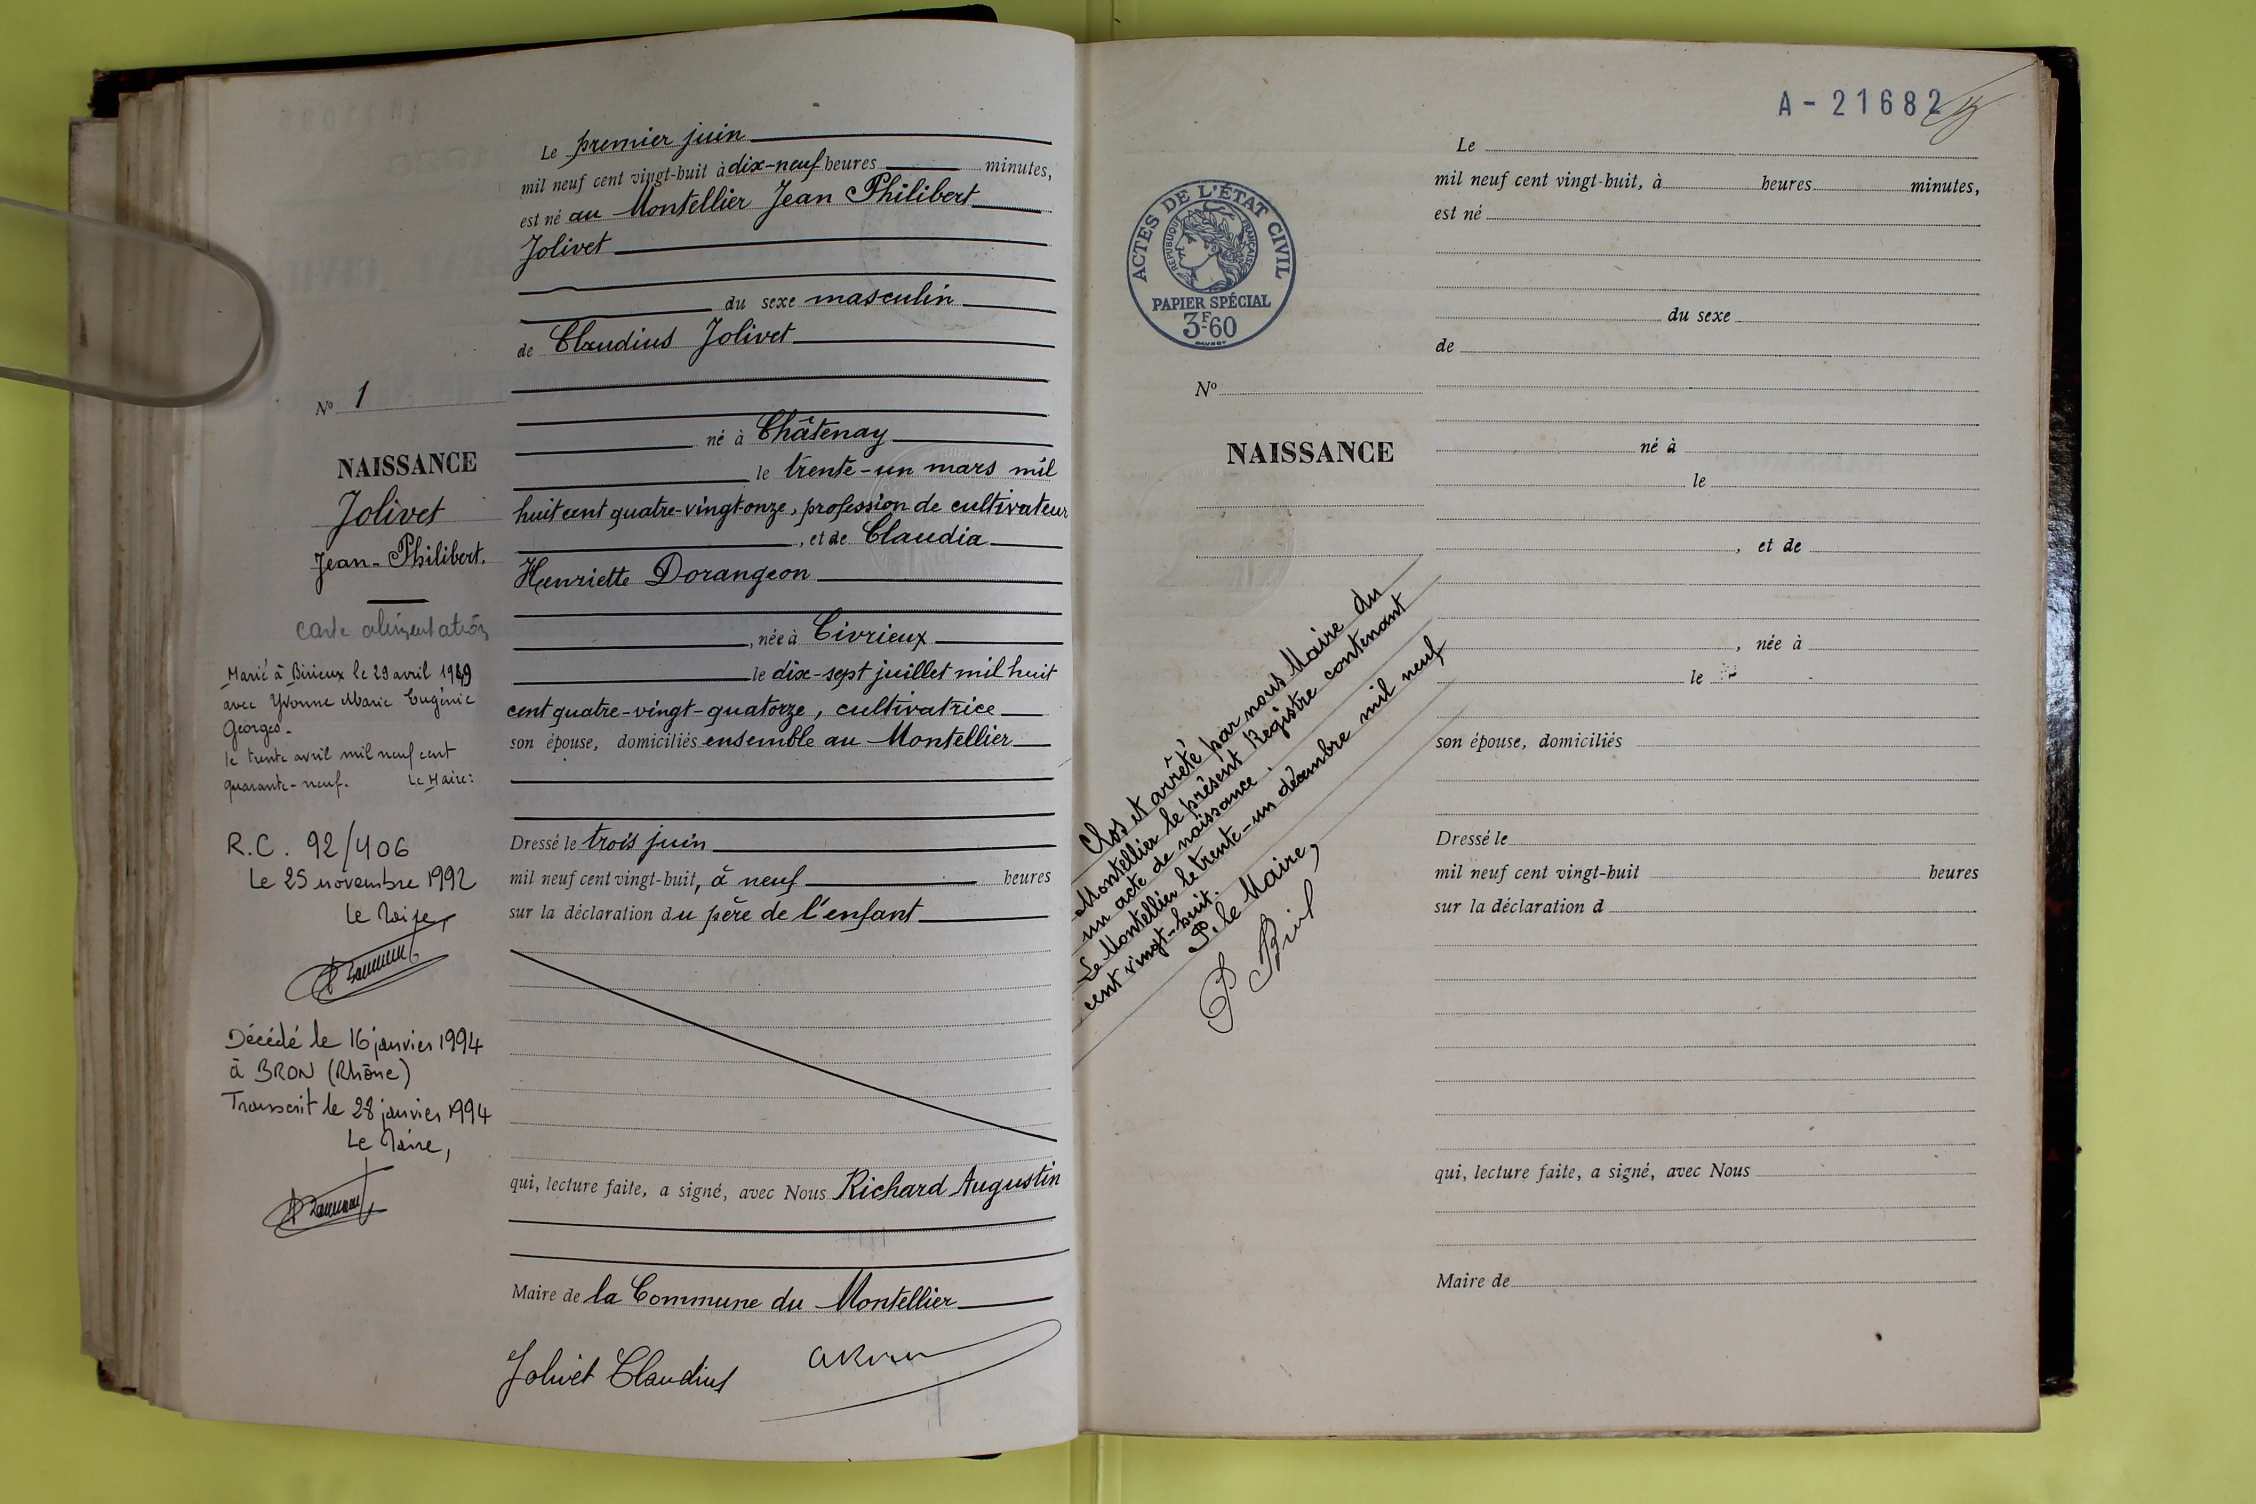 Le premier juin
mil neuf cent vingt-huit à dix-neuf heures minutes,
est né au Montellier Jean Philibert
Jolivet
du sexe masculin
de Claudius Jolivet
né à Châtenay
le trente-un mars mil
huit cent quatre-vingt-onze, profession de cultivateur
, et de Claudia
Henriette Dorangeon
, née à Civrieux
le dix-sept juillet mil huit
cent quatre-vingt-quatorze, cultivatrice
son épouse, domiciliés ensemble au Montellier
Dressé le trois juin
mil neuf cent vingt-huit, à neuf heures
sur la déclaration du père de l'enfant
qui, lecture faite, a signé, avec Nous Richard Augustin
Maire de la Commune du Montellier
Jolivet Claudius
No 1
NAISSANCE
Jolivet
Jean-Philibert.
Carte alimentation
Marié à Birieux le 29 avril 1949
avec Yvonne Marie Eugénie
Georges.
le trente avril mil neuf cent
quarante-neuf. Le Maire:
R.C. 92/406
Le 25 novembre 1992
Le Maire,
Décédé le 16 janvier 1994
à BRON (Rhône)
Transcrit le 28 janvier 1994
Le Maire,
A-21682
ACTES DE L'ÉTAT CIVIL
RÉPUBLIQUE FRANÇAISE
PAPIER SPÉCIAL
3F60
No
NAISSANCE
Clos et arrêté par nous Maire du
Montellier le présent Registre contenant
un acte de naissance.
Le Montellier le trente-un décembre mil neuf
cent vingt-huit.
P. le Maire,
Le
mil neuf cent vingt-huit, à heures minutes,
est né
du sexe
de
né à
le
, et de
, née à
le
son épouse, domiciliés
Dressé le
mil neuf cent vingt-huit heures
sur la déclaration d
qui, lecture faite, a signé, avec Nous
Maire de